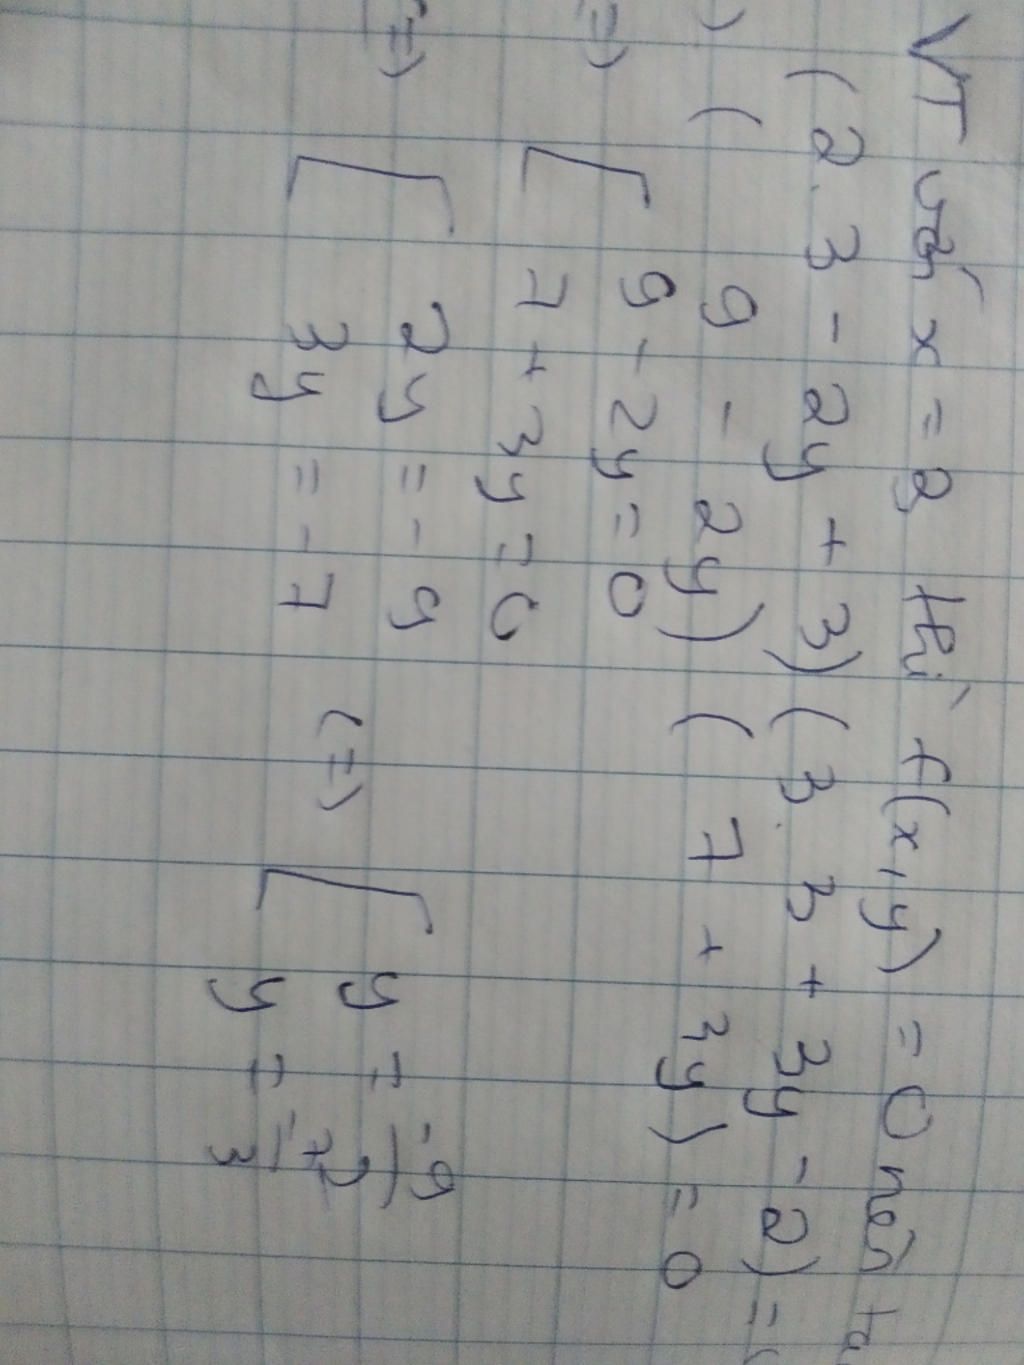 VT với x = 3 thì f(x,y) = 0 nên ta
(2.3 - 2y + 3)(3.3 + 3y - 2) =
(9 - 2y)(7 + 3y) = 0
(=) [ 9 - 2y = 0
7 + 3y = 0
(=) [ 2y = -9 (=) [ y = -9/2
3y = -7 y = -7/3